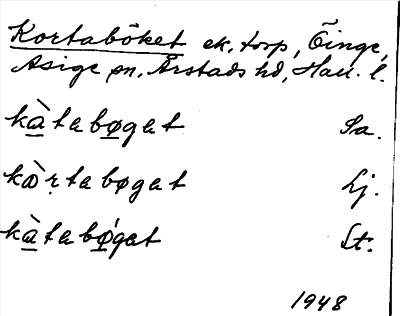 Kortaböket ek. torp, Öinge,
Asige sn. Årstads hd, Hall. l.
kàtabøgat Sa.
kòrtabøgat Lj.
kàtabøgat St.
1948